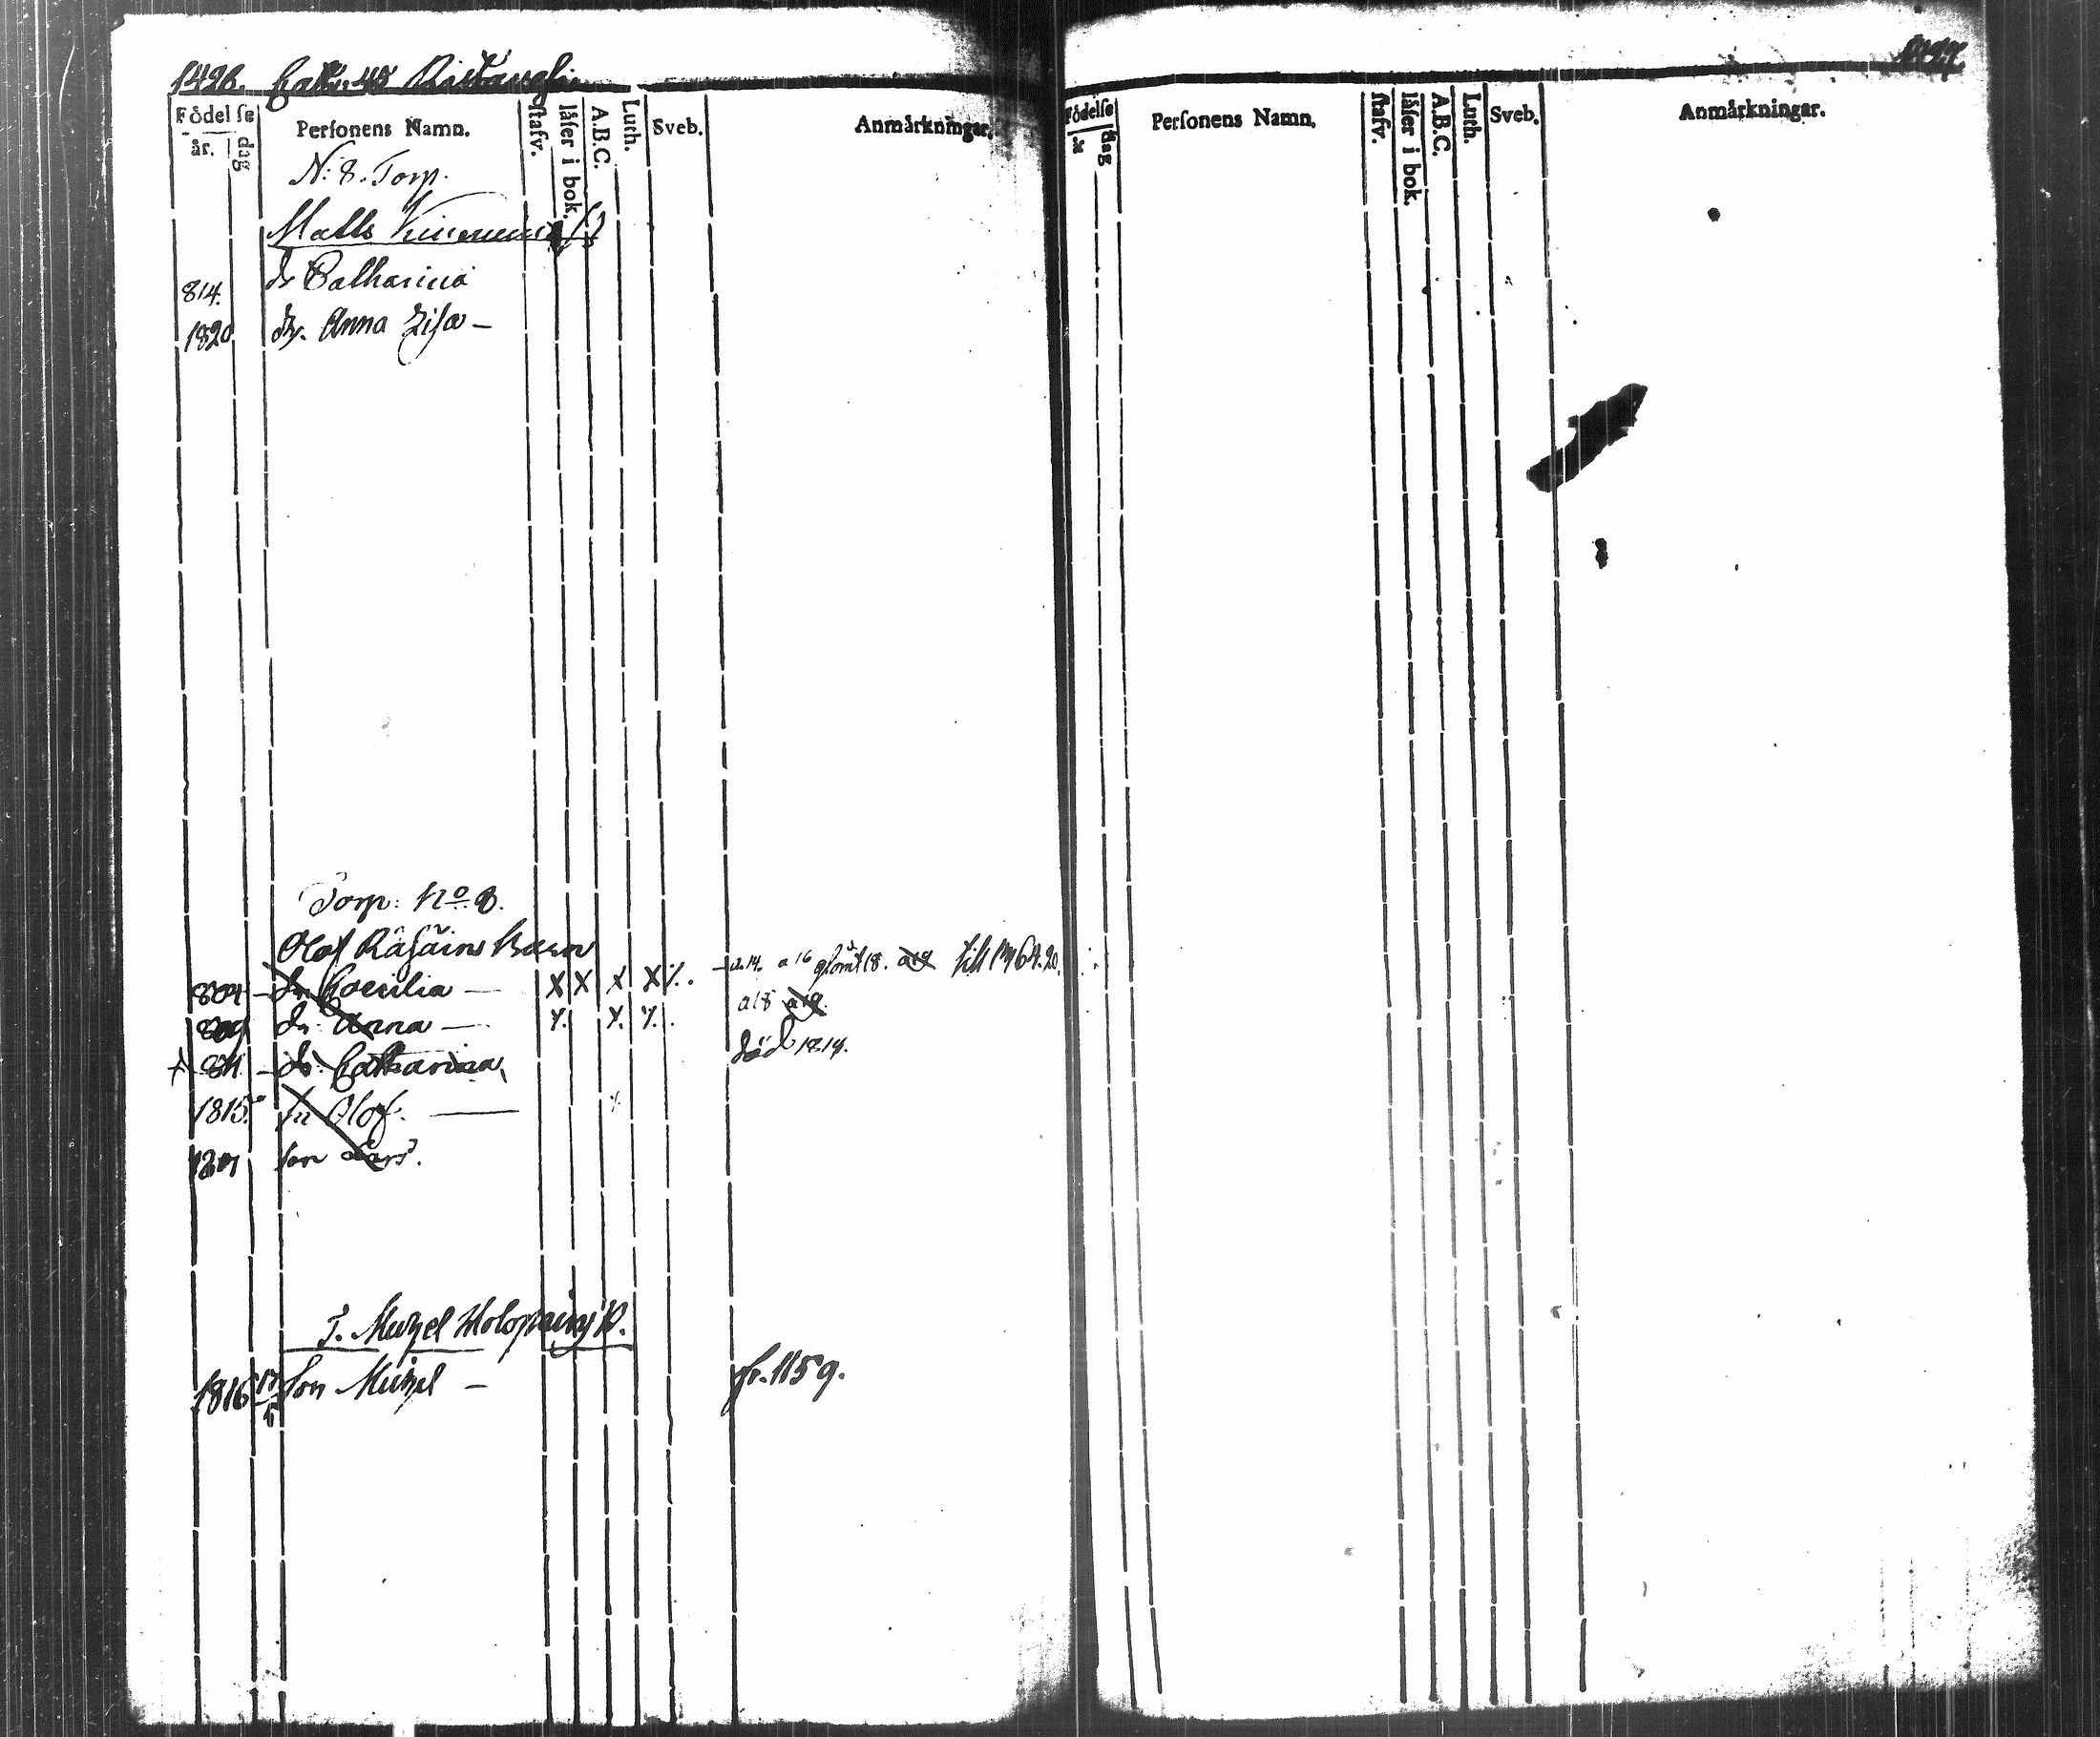 1426.
Födelse
år. dag
Personens Namn.
stafv.
läser i bok.
A.B.C.
Luth.
Sveb.
Anmärkningar.
N: 8. Torp.
Matts
814. dr Catharina
1820 dr. Anna Lisa —
Torp: No 8.
Olof Räsäins Barn
804 — dr Coecilia — X X X X ·/. a 14. a 16 glömt 18. a19 till
809 dr: Anna — ·/. ·/. ·/. a18 a19.
+ 811. — dr: Catharina, död 1814.
1815. sn Olof. —
son Lars.
T. Michel Holopains B.
1816 son Michel — fr. 1159.
Födelse
dag
Personens Namn.
stafv.
läser i bok.
A.B.C.
Luth.
Sveb.
Anmärkningar.